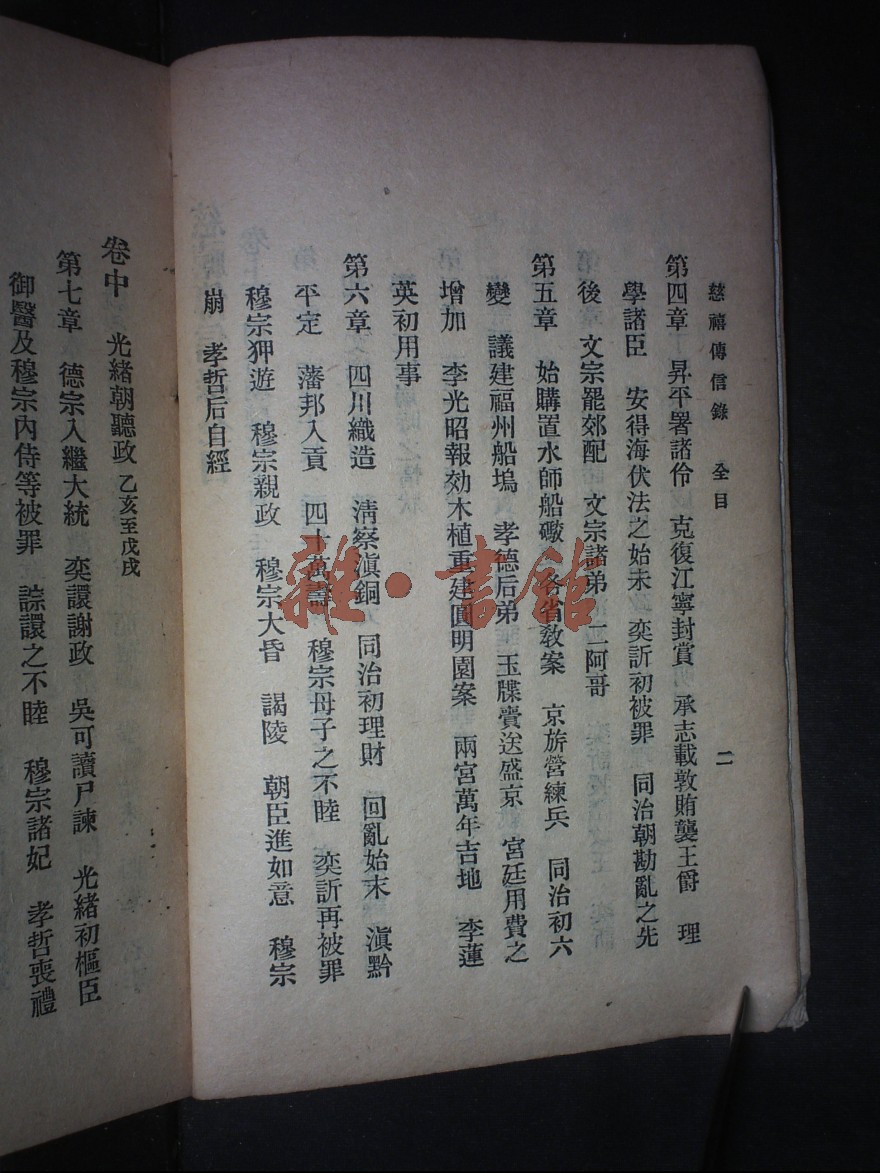 慈禧傳信錄 全目 二
第四章 昇平署諸伶 克復江寧封賞 承志載敦賄襲王爵 理
學諸臣 安得海伏法之始末 奕訢初被罪 同治朝勘亂之先
後 文宗罷郊配 文宗諸弟 二阿哥
第五章 始購置水師船礮 各省教案 京旂營練兵 同治初六
變 議建福州船塢 孝德后弟 玉牒賚送盛京 宮廷用費之
增加 李光昭報効木植重建圓明園案 兩宮萬年吉地 李蓮
英初用事
第六章 四川織造 清察滇銅 同治初理財 回亂始末 滇黔
平定 藩邦入貢 四十萬壽 穆宗母子之不睦 奕訢再被罪
穆宗狎遊 穆宗親政 穆宗大昏 謁陵 朝臣進如意 穆宗
崩 孝哲后自經
卷中 光緒朝聽政 乙亥至戊戌
第七章 德宗入繼大統 奕譞謝政 吳可讀尸諫 光緒初樞臣
御醫及穆宗內侍等被罪 誴譞之不睦 穆宗諸妃 孝哲喪禮
雜·書館